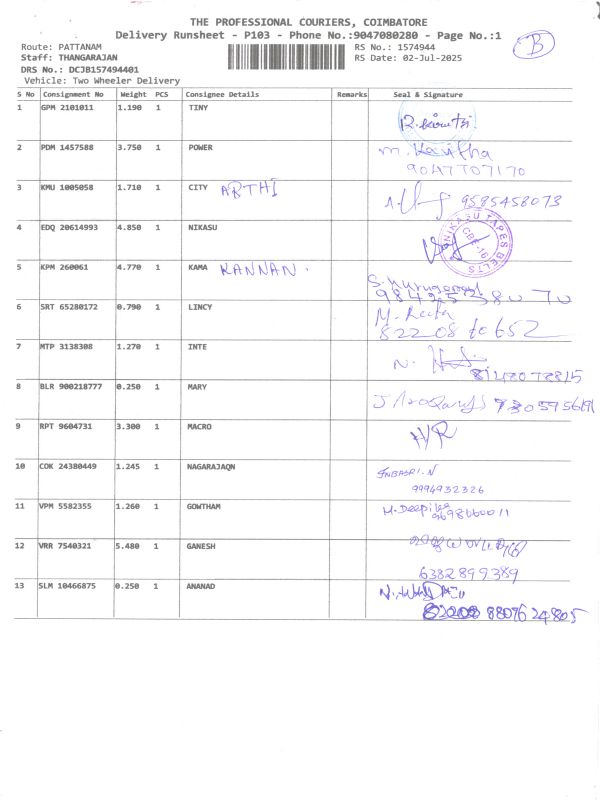 THE PROFESSIONAL COURIERS, COIMBATORE
Delivery Runsheet - P103 - Phone No.:9047080280 - Page No.:1
B
Route: PATTANAM
RS No.: 1574944
Staff: THANGARAJAN
RS Date: 02-Jul-2025
DRS No.: DCJB157494401
Vehicle: Two Wheeler Delivery
S No Consignment No Weight PCS Consignee Details Remarks Seal & Signature
1 GPM 2101011 1.190 1 TINY
2 PDM 1457588 3.750 1 POWER M. Kavitha
9047707170
3 KMU 1005058 1.710 1 CITY ARTHI 9585458073
4 EDQ 20614993 4.850 1 NIKASU NIKASU TAPES BELTS CBE-16
5 KPM 260061 4.770 1 KAMA KANNAN. S. Murugan
9842538070
6 SRT 65280172 0.790 1 LINCY M. Reeta
822208 to 652
7 MTP 3138308 1.270 1 INTE N.
8 BLR 900218777 0.250 1 MARY
9 RPT 9604731 3.300 1 MACRO
10 COK 24380449 1.245 1 NAGARAJAQN INBASRI.N
9994932326
11 VPM 5582355 1.260 1 GOWTHAM M. Deepika
12 VRR 7540321 5.480 1 GANESH
6382899389
13 SLM 10466875 0.250 1 ANANAD
8807624805